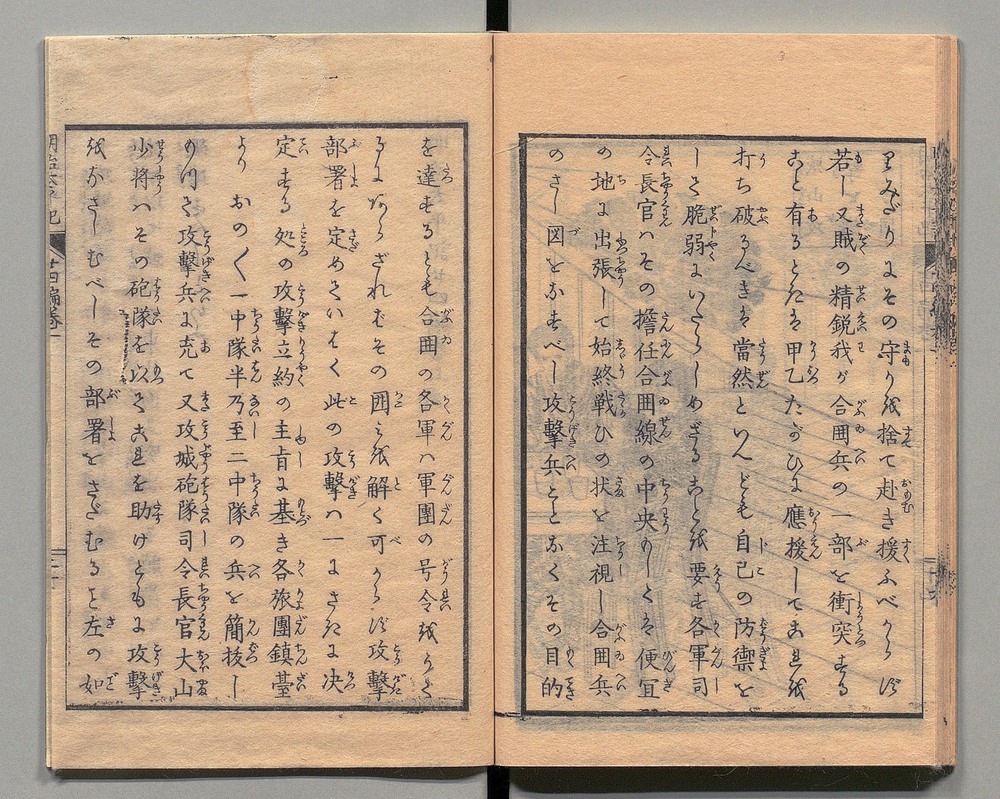 里みだりにその守りを捨て赴き援ふべからず
若し又賊の精鋭我が合囲兵の一部を衝突する
こと有るときは甲乙たがひに應援してこれを
打ち破るべきは當然といへども自己の防禦を
して脆弱にいたらしめざることを要す各軍司
令長官ハその擔任合囲線の中央もしくは便宜
の地に出張して始終戦ひの状を注視し合囲兵
のさし図をなすべし攻擊兵となくその目的
を達するとも合囲の各軍ハ軍團の号令をうく
るにあらざれバその囲ミを解く可からず攻擊
部署を定めていはく此の攻擊ハ一にさきに决
定する処の攻擊立約の主旨に基き各旅團鎮臺
より おの〱一中隊半乃至二中隊の兵を簡抜し
もつて攻擊兵に充て又攻城砲隊司令長官大山
少将ハその砲隊を以てこれを助けともに攻擊
をなさしむべしその部署をさだむる左の如
明治太平記
廿四編巻一